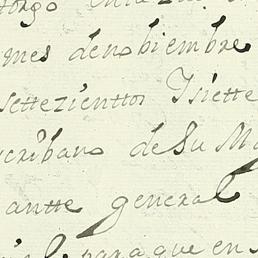 torgo
mes de nobiembre
settezienttos Isiette
scribano de Su Ma
antte general
para que en